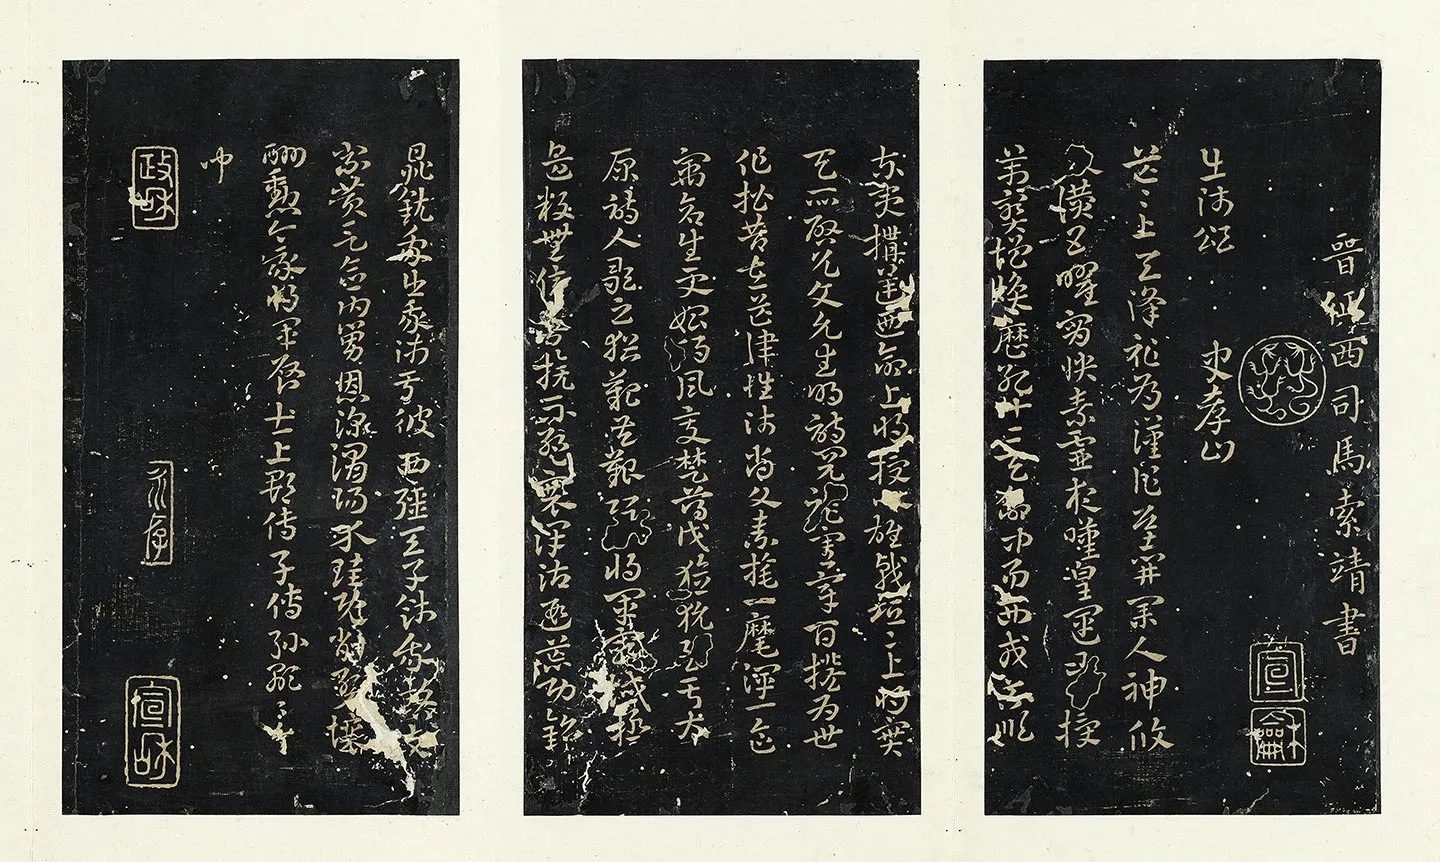 晉征西司馬索靖書
宣
龢
出師頌 史孝山
茫々上天降祚為漢作基開業人神攸
讚五曜宵映素靈夜嘆皇運未授
萬寶增煥歷紀十二天命中易西戎不順
東夷構逆乃命上將授以雄戟桓々上將實
天所啟允文允武明詩閱禮憲章百揆為世
作楷昔在孟津惟師尚父素旄一麾渾一區
寓蒼生更始朔風變楚薄伐獫狁至于太
原詩人歌之猶歎其艱況我將軍窮城極
邊鼓無停響旗不蹔褰澤沾遐荒功銘
鼎鉉我出我師于彼西疆天子餞我路車
乘黃言念伯舅恩深渭陽介珪既削裂壤
酬勳今我將軍啟土上郡傳子傳孫顯々令
問
政龢
永存
宣龢